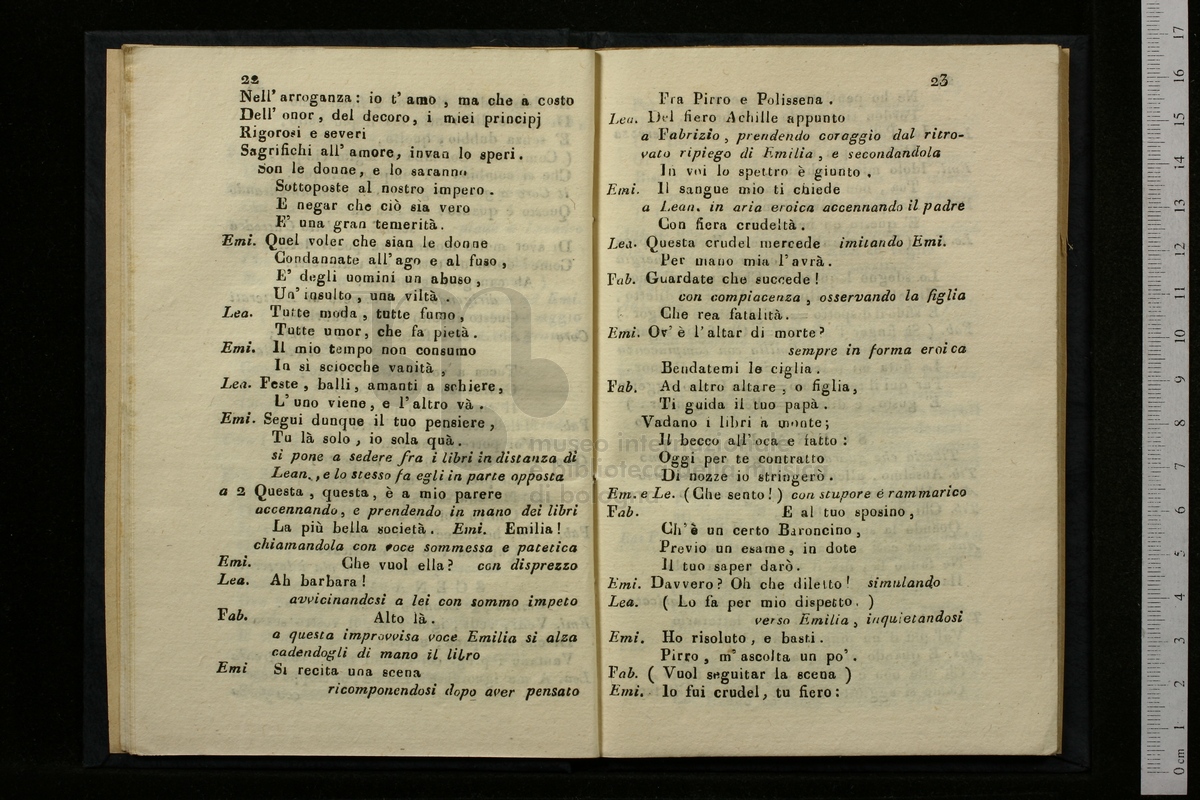 22
Nell' arroganza: io t' amo, ma che a costo
Dell' onor, del decoro, i miei principj
Rigorosi e severi
Sagrifichi all' amore, invan lo speri.
Son le donne, e lo saranno
Sottoposte al nostro impero.
E negar che ciò sia vero
E' una gran temerità.
Emi. Quel voler che sian le donne
Condannate all' ago e al fuso,
E' degli uomini un abuso,
Un' insulto, una viltà.
Lea. Tutte moda, tutte fumo,
Tutte umor, che fa pietà.
Emi. Il mio tempo non consumo
In sì sciocche vanità,
Lea. Feste, balli, amanti a schiere,
L' uno viene, e l' altro và.
Emi. Segui dunque il tuo pensiere,
Tu là solo, io sola quà.
si pone a sedere fra i libri in distanza di
Lean., e lo stesso fa egli in parte opposta
a 2 Questa, questa, è a mio parere
accennando, e prendendo in mano dei libri
La più bella società. Emi. Emilia!
chiamandola con voce sommessa e patetica
Emi. Che vuol ella? con disprezzo
Lea. Ah barbara!
avvicinandosi a lei con sommo impeto
Fab. Alto là.
a questa improvvisa voce Emilia si alza
cadendogli di mano il libro
Emi Si recita una scena
ricomponendosi dopo aver pensato
23
Fra Pirro e Polissena.
Lea. Del fiero Achille appunto
a Fabrizio, prendendo coraggio dal ritro-
vato ripiego di Emilia, e secondandola
In voi lo spettro è giunto.
Emi. Il sangue mio ti chiede
a Lean. in aria eroica accennando il padre
Con fiera crudeltà.
Lea. Questa crudel mercede imitando Emi.
Per mano mia l' avrà.
Fab. Guardate che succede!
con compiacenza, osservando la figlia
Che rea fatalità.
Emi. Ov' è l' altar di morte?
sempre in forma eroica
Bendatemi le ciglia.
Fab. Ad altro altare, o figlia,
Ti guida il tuo papà.
Vadano i libri a monte;
Il becco all' oca e fatto:
Oggi per te contratto
Di nozze io stringerò.
Em. e Le. (Che sento!) con stupore é rammarico
Fab. E al tuo sposino,
Ch' è un certo Baroncino,
Previo un esame, in dote
Il tuo saper darò.
Emi. Davvero? Oh che diletto! simulando
Lea. (Lo fa per mio dispetto.)
verso Emilia, inquietandosi
Emi. Ho risoluto, e basti.
Pirro, m' ascolta un po'.
Fab. (Vuol seguitar la scena)
Emi. Io fui crudel, tu fiero:
museo internazionale
e biblioteca della musica
di bologna
0 cm 1 2 3 4 5 6 7 8 9 10 11 12 13 14 15 16 17